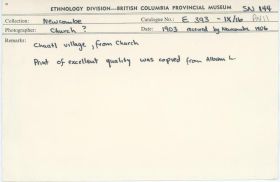 ETHNOLOGY DIVISION—BRITISH COLUMBIA PROVINCIAL MUSEUM SN 144
Collection: Newcombe Catalogue No.: E 393 - IX/16
Photographer: Church ? Date: 1903 received by Newcombe 1906
Remarks:
Chaatl village, from Church
Print of excellent quality was copied from Album L